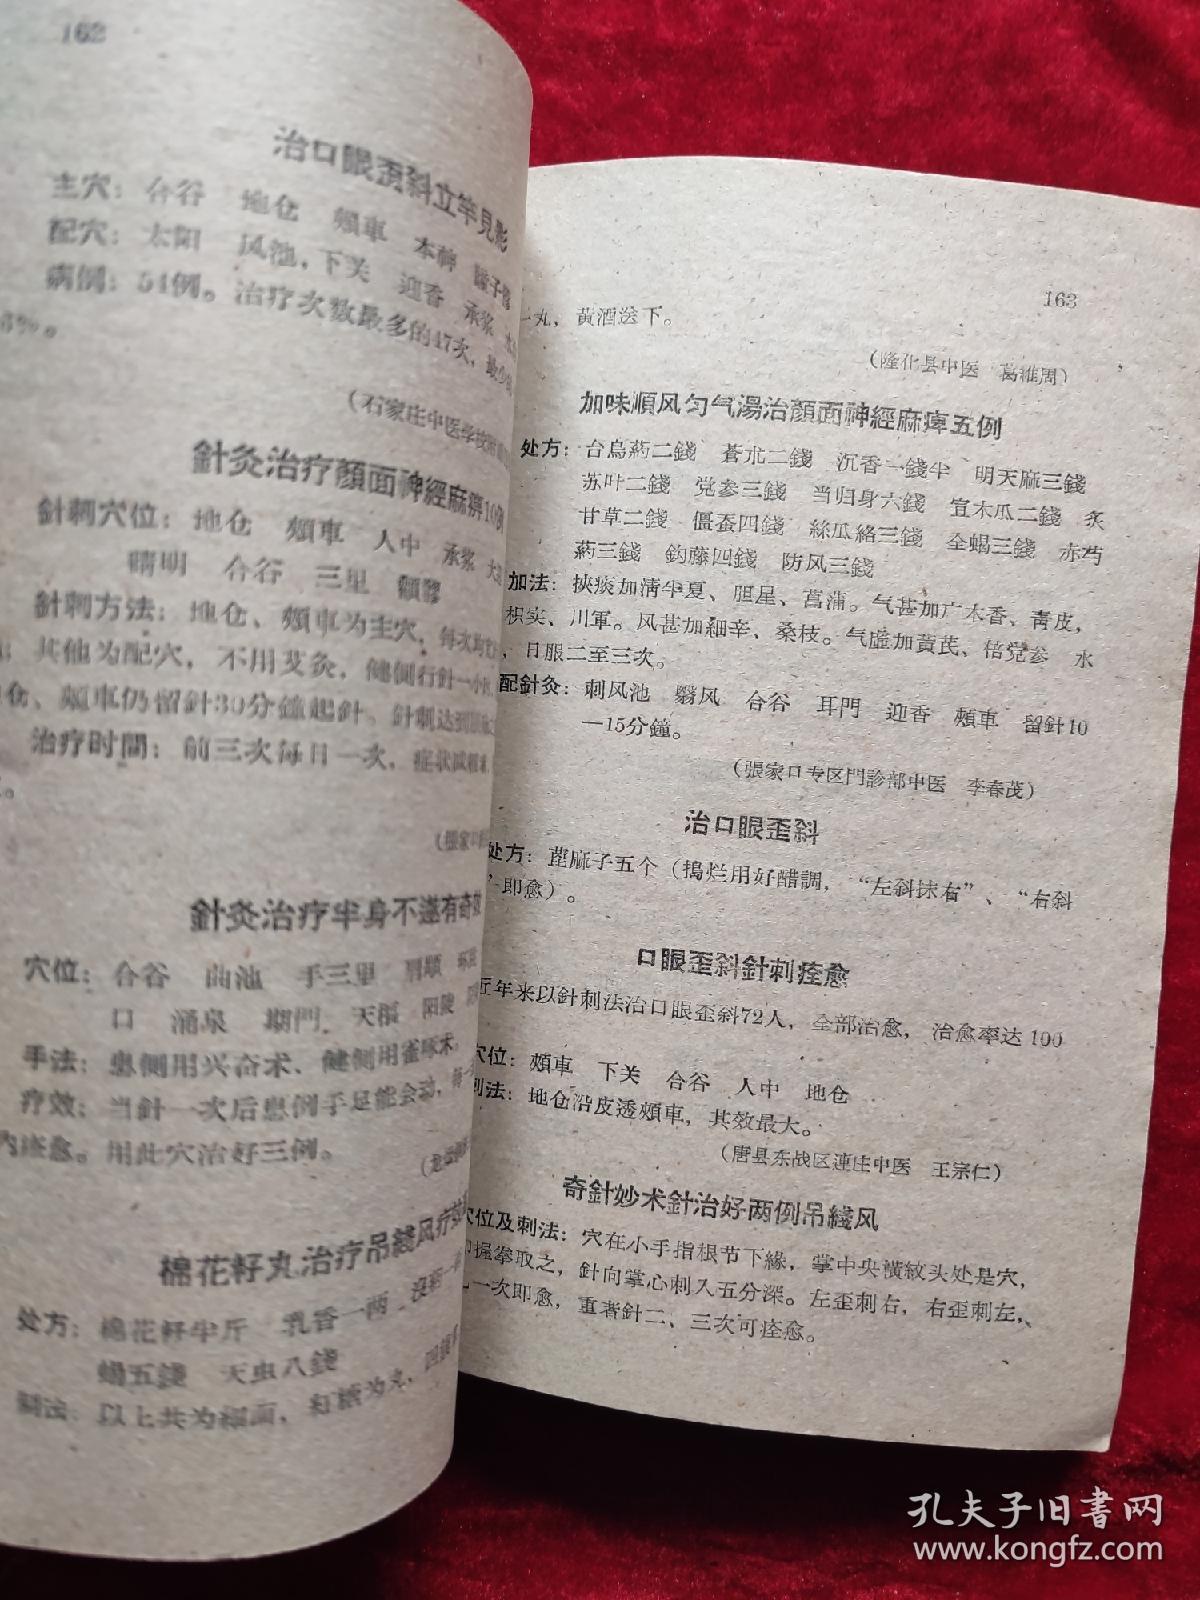 162
治口眼歪斜立竿見影
主穴：合谷 地仓 頰車
配穴：太阳 风池，下关 迎香 承浆
病例：54例。治疗次数最多的47次，最少
（石家庄中医学校
針灸治疗顏面神經麻痹10例
針刺穴位：地仓 頰車 人中 承浆
睛明 合谷 三里 顴髎
針刺方法：地仓、頰車为主穴，每次均
其他为配穴，不用艾灸，健側行針一小
仓、頰車仍留針30分鐘起針。針刺达到
治疗时間：前三次每日一次，症状减輕
（張家口
針灸治疗半身不遂有奇效
穴位：合谷 曲池 手三里 肩顒 环跳
口 涌泉 期門 天樞 阳陵
手法：患側用兴奋术、健側用雀啄术，
疗效：当針一次后患側手足能会动，每
内痊愈。用此穴治好三例。
棉花籽丸治疗吊綫风疗效
处方：棉花籽半斤 乳香一两 沒药一
蝎五錢 天虫八錢
制法：以上共为細面，紅糖为丸，四錢
163
一丸，黃酒送下。
（隆化县中医 葛維周）
加味順风匀气湯治顏面神經麻痺五例
处方：台烏葯二錢 蒼朮二錢 沉香一錢半 明天麻三錢
苏叶二錢 党参三錢 当归身六錢 宜木瓜二錢 炙
甘草二錢 僵蚕四錢 絲瓜絡三錢 全蝎三錢 赤芍
葯三錢 鈎藤四錢 防风三錢
加法：挾痰加淸半夏、胆星、菖蒲。气甚加广木香、靑皮，
枳实、川軍。风甚加細辛、桑枝。气虛加黃芪、倍党参 水
，日服二至三次。
配針灸：刺风池 翳风 合谷 耳門 迎香 頰車 留針10
—15分鐘。
（張家口专区門診部中医 李春茂）
治口眼歪斜
处方：蓖麻子五个（搗烂用好醋調，“左斜抹右”、“右斜
”即愈）。
口眼歪斜針刺痊愈
近年来以針刺法治口眼歪斜72人，全部治愈，治愈率达100
穴位：頰車 下关 合谷 人中 地仓
刺法：地仓沿皮透頰車，其效最大。
（唐县东战区連庄中医 王宗仁）
奇針妙术針治好两例吊綫风
穴位及刺法：穴在小手指根节下緣，掌中央横紋头处是穴，
即握拳取之，針向掌心刺入五分深。左歪刺右，右歪刺左，
一次即愈，重者針二、三次可痊愈。
孔夫子旧書网
www.kongfz.com